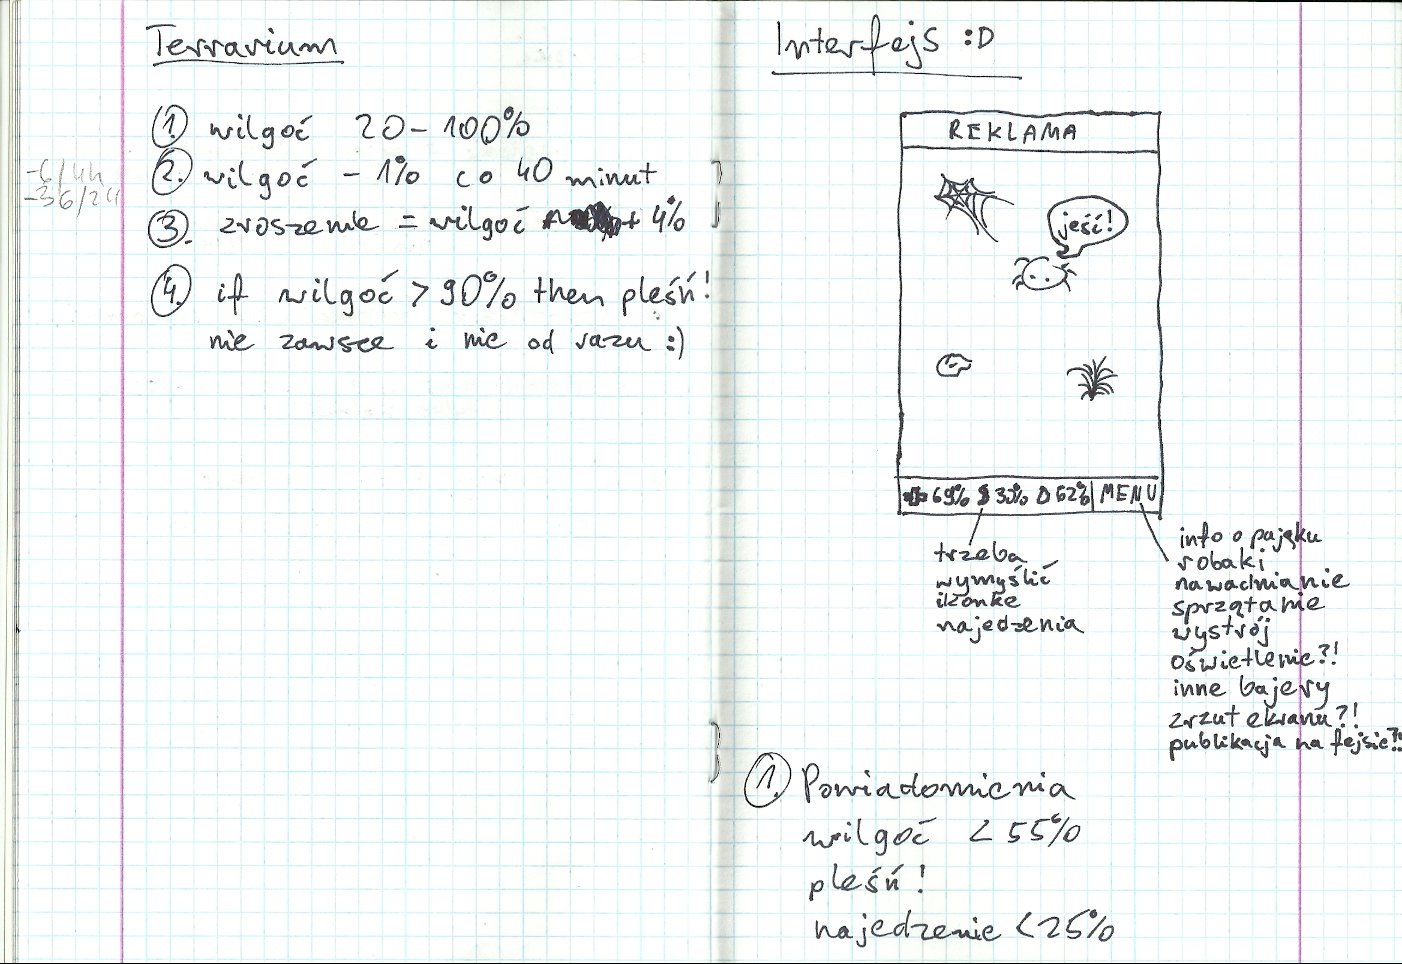 Terrarium
1. wilgoć 20-100%
2. wilgoć -1% co 40 minut
3. zroszenie = wilgoć + 4%
4. if wilgoć > 90% then pleśń!
nie zawsze i nie od razu :)
Interfejs :D
REKLAMA
jeść!
69% 30% 62% MENU
trzeba
wymyślić
ikonke
najedzenia
info o pająku
robaki
nawadnianie
sprzątanie
wystrój
oświetlenie?!
inne bajery
zrzut ekranu?!
publikacja na fejsie?!
1. Powiadomienia
wilgoć < 55%
pleśń!
najedzenie < 25%